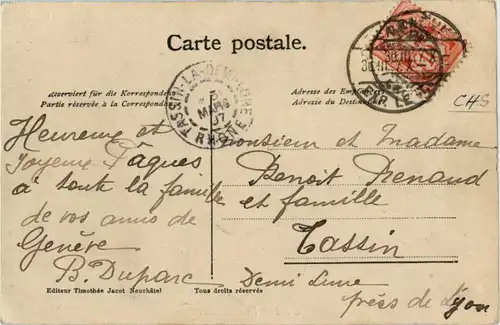 Carte postale.
Reserviert für die Korrespondenz
Partie réservée à la Correspondance
Adresse des Empfängers
Adresse du Destinataire
TASSIN-LA-DEMI-LUNE
MARS
07
RHÔNE
CHS
Heureuse et
Joyeuse Pâques
à toute la famille
de vos amis de
Genève
B. Duparc
Monsieur et Madame
Benoit Renaud
et famille
Tassin
Demi Lune
près de Lyon
Editeur Timothée Jacot Neuchâtel
Tous droits réservés